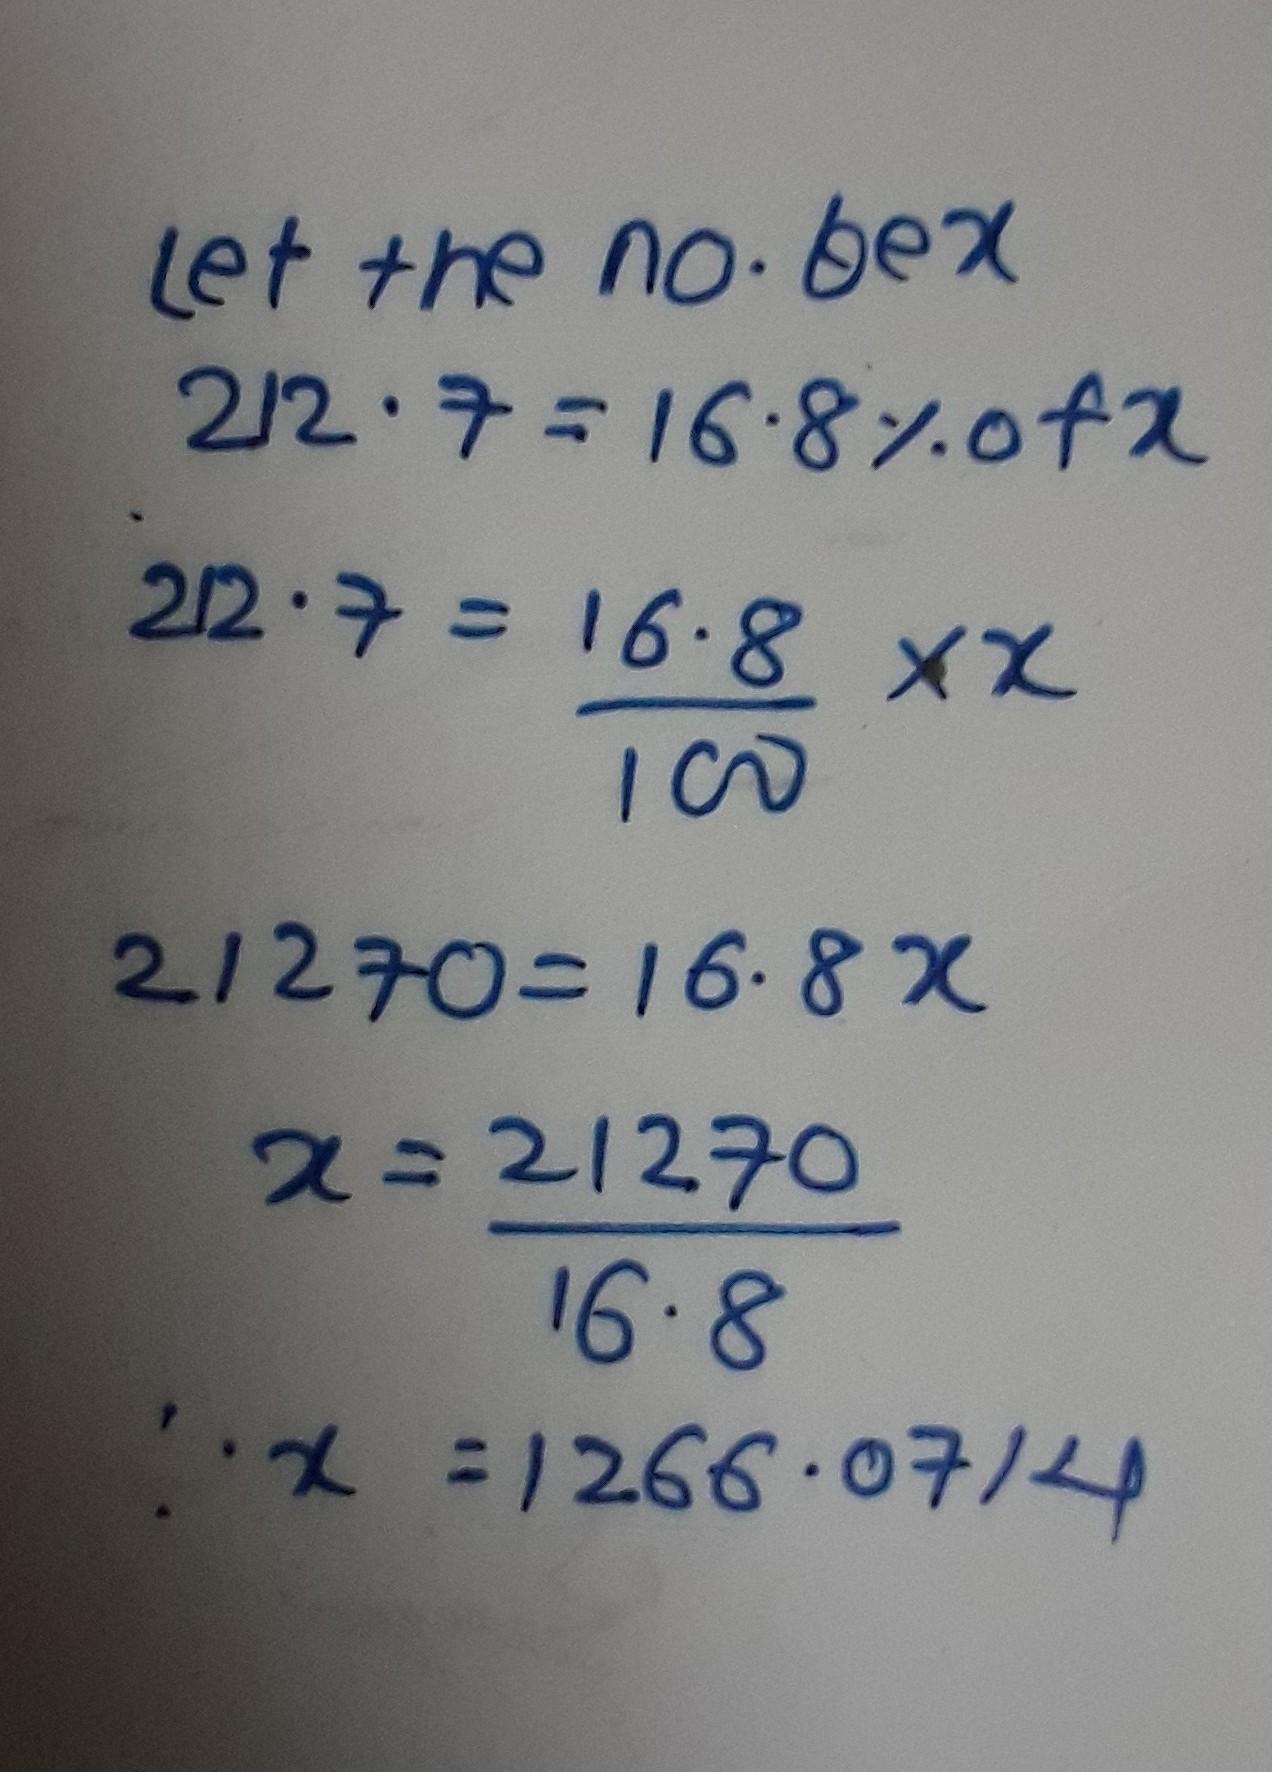 Let the no. be x
212.7 = 16.8% of x
212.7 = 16.8/100 × x
21270 = 16.8 x
x = 21270/16.8
∴ x = 1266.0714